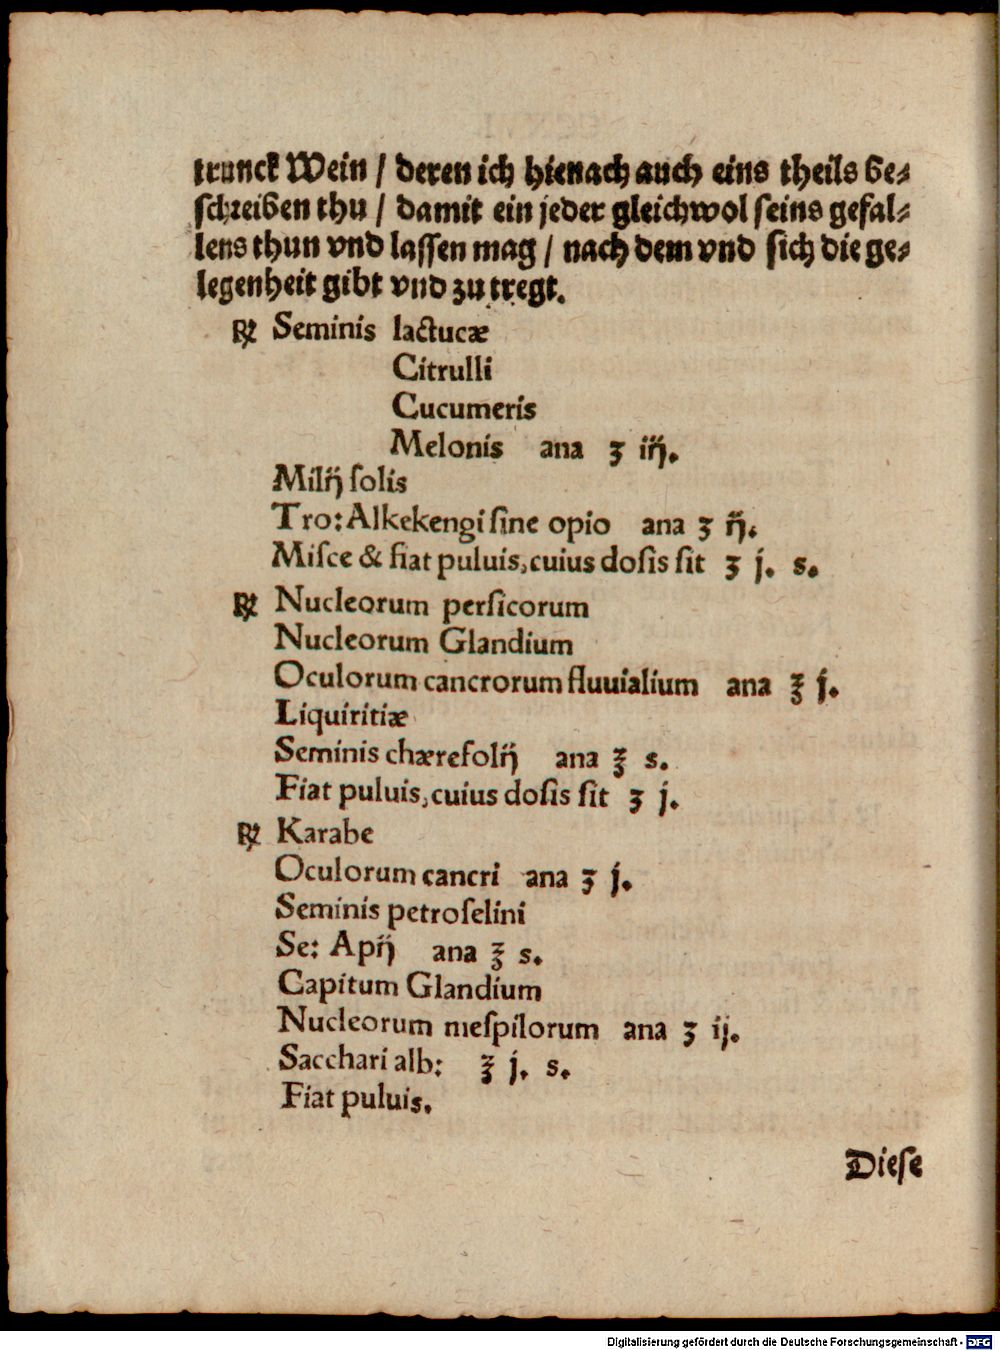 trunck Wein / deren ich hienach auch eins theils be⸗
schreiben thu / damit ein jeder gleichwol seins gefal⸗
lens thun vnd lassen mag / nach dem vnd sich die ge⸗
legenheit gibt vnd zu tregt.
℞ Seminis lactucæ
Citrulli
Cucumeris
Melonis ana ʒ iij.
Milij solis
Tro: Alkekengi sine opio ana ʒ ij.
Misce & fiat puluis, cuius dosis sit ʒ j. s.
℞ Nucleorum persicorum
Nucleorum Glandium
Oculorum cancrorum fluuialium ana ℥ j.
Liquiritiæ
Seminis chærefolij ana ℥ s.
Fiat puluis, cuius dosis sit ʒ j.
℞ Karabe
Oculorum cancri ana ʒ j.
Seminis petroselini
Se: Apij ana ℥ s.
Capitum Glandium
Nucleorum mespilorum ana ʒ ij.
Sacchari alb: ℥ j. s.
Fiat puluis.
Diese
Digitalisierung gefördert durch die Deutsche Forschungsgemeinschaft - DFG